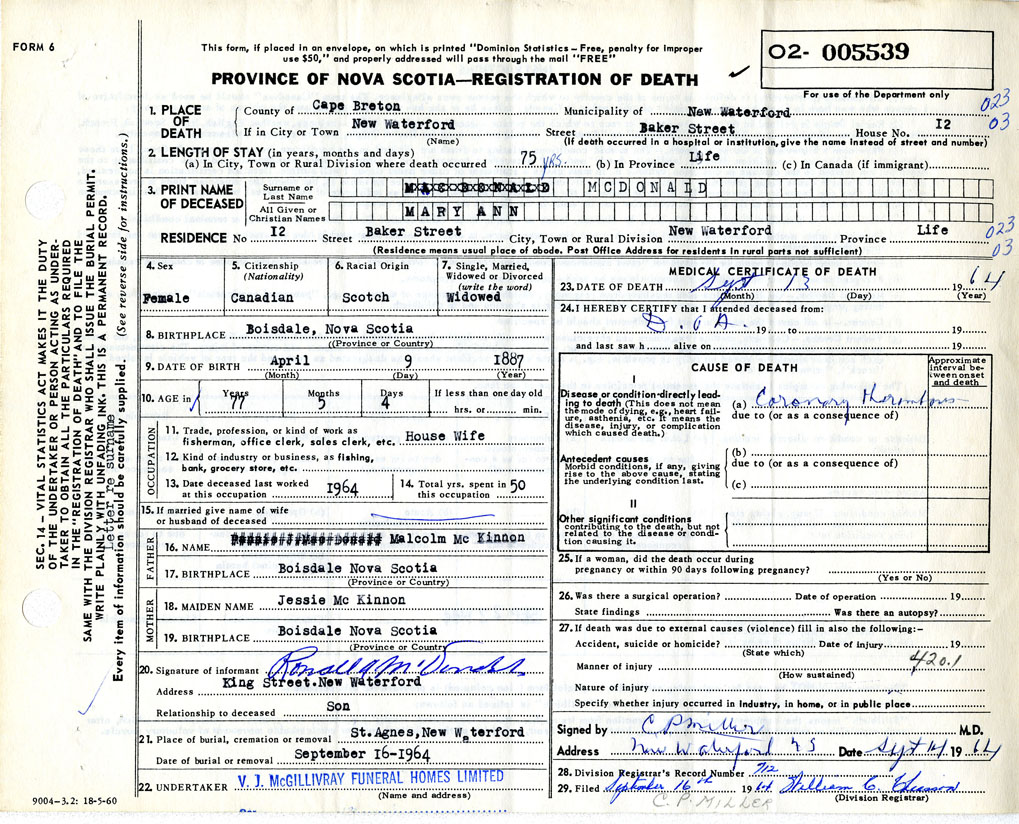 FORM 6
This form, if placed in an envelope, on which is printed "Dominion Statistics – Free, penalty for improper
use $50," and properly addressed will pass through the mail "FREE"
PROVINCE OF NOVA SCOTIA—REGISTRATION OF DEATH
O2- 005539
For use of the Department only
023
03
1. PLACE OF DEATH
County of Cape Breton Municipality of New Waterford
If in City or Town New Waterford Street Baker Street House No. I2
(Name) (If death occurred in a hospital or institution, give the name instead of street and number)
2. LENGTH OF STAY (in years, months and days)
(a) In City, Town or Rural Division where death occurred 75 yrs. (b) In Province Life (c) In Canada (if immigrant)
3. PRINT NAME OF DECEASED
Surname or Last Name MCDONALD
All Given or Christian Names MARY ANN
RESIDENCE No I2 Street Baker Street City, Town or Rural Division New Waterford Province Life
023
03
(Residence means usual place of abode. Post Office Address for residents in rural parts not sufficient)
4. Sex
Female
5. Citizenship
(Nationality)
Canadian
6. Racial Origin
Scotch
7. Single, Married,
Widowed or Divorced
(write the word)
Widowed
8. BIRTHPLACE Boisdale, Nova Scotia
((Province or Country)
9. DATE OF BIRTH April 9 1887
(Month) (Day) (Year)
10. AGE in Years Months Days If less than one day old
77 5 4 hrs. or min.
OCCUPATION
11. Trade, profession, or kind of work as
fisherman, office clerk, sales clerk, etc. House Wife
12. Kind of industry or business, as fishing,
bank, grocery store, etc
13. Date deceased last worked
at this occupation 1964
14. Total yrs. spent in
this occupation 50
15. If married give name of wife
or husband of deceased
FATHER
16. NAME Malcolm Mc Kinnon
17. BIRTHPLACE Boisdale Nova Scotia
(Province or Country)
MOTHER
18. MAIDEN NAME Jessie Mc Kinnon
19. BIRTHPLACE Boisdale Nova Scotia
(Province or Country)
20. Signature of informant Ronald A McDonald
Address King Street.New Waterford
Relationship to deceased Son
21. Place of burial, cremation or removal St.Agnes,New Waterford
Date of burial or removal September 16-1964
22. UNDERTAKER V. J. McGILLIVRAY FUNERAL HOMES LIMITED
(Name and address)
9004-3.2: 18-5-60
MEDICAL CERTIFICATE OF DEATH
23. DATE OF DEATH Sept 13 1964
(Month) (Day) (Year)
24. I HEREBY CERTIFY that I attended deceased from:
D.O.A. 19 to 19
and last saw h alive on 19
CAUSE OF DEATH
Approximate
interval be-
tween onset
and death
I
Disease or condition directly lead-
ing to death (This does not mean
the mode of dying, e.g., heart fail-
ure, asthenia, etc. It means the
disease, injury, or complication
which caused death.)
(a) Coronary thrombosis
due to (or as a consequence of)
Antecedent causes
Morbid conditions, if any, giving
rise to the above cause, stating
the underlying condition last.
(b)
due to (or as a consequence of)
(c)
II
Other significant conditions
contributing to the death, but not
related to the disease or condi-
tion causing it.
25. If a woman, did the death occur during
pregnancy or within 90 days following pregnancy?
(Yes or No)
26. Was there a surgical operation? Date of operation 19
State findings Was there an autopsy?
27. If death was due to external causes (violence) fill in also the following:–
Accident, suicide or homicide? Date of injury 19
(State which)
420.1
Manner of injury
(How sustained)
Nature of injury
Specify whether injury occurred in Industry, in home, or in public place
Signed by C P Miller M.D.
Address New Waterford NS Date Sept 14 1964
28. Division Registrar's Record Number 712
29. Filed September 16th 1964 William C. Chiasson
(Division Registrar)
C. P. MILLER
SEC. 14 – VITAL STATISTICS ACT MAKES IT THE DUTY
OF THE UNDERTAKER OR PERSON ACTING AS UNDER-
TAKER TO OBTAIN ALL THE PARTICULARS REQUIRED
IN THE "REGISTRATION OF DEATH" AND TO FILE THE
SAME WITH THE DIVISION REGISTRAR WHO SHALL ISSUE THE BURIAL PERMIT.
WRITE PLAINLY WITH UNFADING INK. THIS IS A PERMANENT RECORD.
Letter re surname
Every item of information should be carefully supplied. (See reverse side for instructions.)